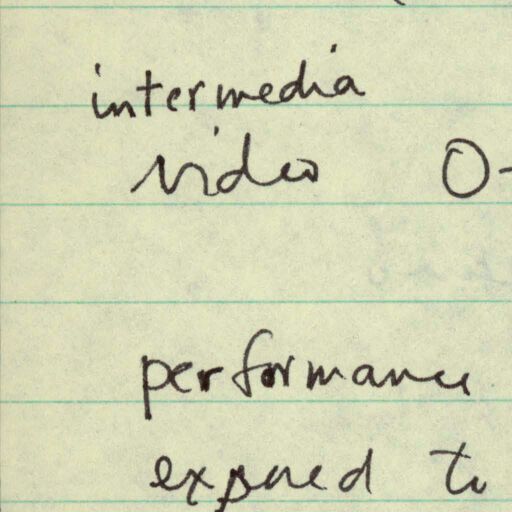 intermedia
video O-
performance
exposed to